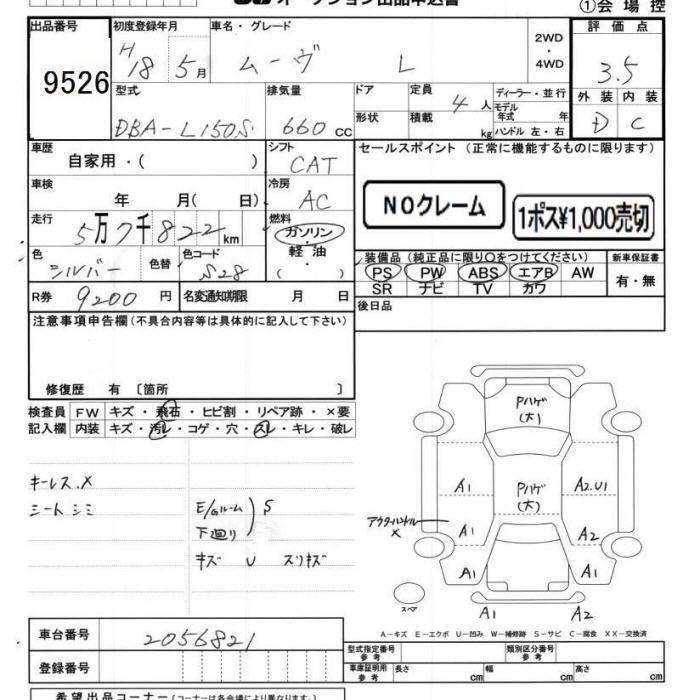 オークション出品申込書
①会場控
出品番号
初度登録年月
車名・グレード
評価点
9526
H18 5月
ムーヴ L
2WD・4WD
3.5
型式
排気量
ドア
定員
ディーラー・並行
外装
内装
DBA-L150S
660 CC
形状
積載
4 人
kg
モデル年式 年
ハンドル 左・右
D
C
車歴
自家用・( )
シフト
CAT
セールスポイント (正常に機能するものに限ります)
車検
年 月( 日)
冷房
AC
NOクレーム
1ポス¥1,000売切
走行
5万7千822km
燃料
ガソリン・軽油
( )
色
シルバー
色替
色コード
S28
装備品 (純正品に限り○をつけてください)
新車保証書
PS PW ABS エアB AW
SR ナビ TV カワ
有・無
R券
9200 円
名変通知期限
月 日
後日品
注意事項申告欄(不具合内容等は具体的に記入して下さい)
修復歴 有 〔箇所 〕
検査員記入欄
FW
キズ・飛石・ヒビ割・リペア跡・×要
内装
キズ・汚レ・コゲ・穴・スレ・キレ・破レ
キーレス.X
シートシミ
E/gルーム
下廻り
S
キズ U スリキズ
Pハゲ
(大)
Pハゲ
(大)
A1
A2.U1
アウターハンドル
X
A1
A2
A1
A1
スペア
A1
A2
A-キズ E-エクボ U-凹み W-補修跡 S-サビ C-腐食 XX-交換済
車台番号
2056821
登録番号
型式指定番号
参考
類別区分番号
参考
車庫証明用
参考
長さ cm
幅 cm
高さ cm
希望出品コーナー(コーナーは各会場により異なります。)